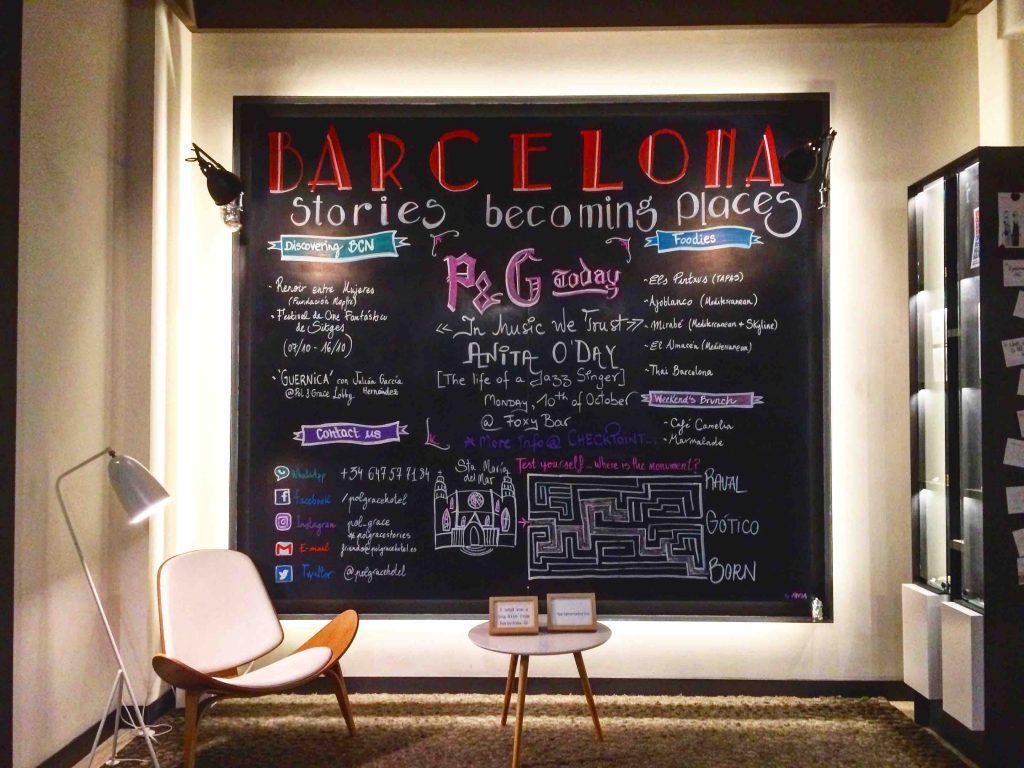 BARCELONA
stories becoming places
Discovering BCN
- Renoir entre Mujeres
(Fundación Mapfre)
- Festival de Cine Fantástico
de Sitges
(07/10 - 16/10)
- 'GUERNICA' con Julián García
@Pol & Grace Lobby Hernández
Contact us
WhatsApp +34 647 57 71 84
Facebook /polgracehotel
Instagram pol_grace
#polgracestories
E-mail friends@polgracehotel.es
Twitter @polgracehotel
P&G Today
«In Music We Trust»
ANITA O'DAY
[The life of a Jazz Singer]
MONDAY, 10th of October
@ Foxy Bar
* More Info @ CHECKPOINT...
Sta. María
del Mar
Test yourself... where is the monument?
RAVAL
GÓTICO
BORN
Foodies
- Els Pintxus (TAPAS)
- Ajoblanco (Mediterranean)
- Mirabé (Mediterranean + Skyline)
- El Almacén (Mediterranean)
- Thai Barcelona
Weekend's Brunch
- Café Camelia
- Marmalade